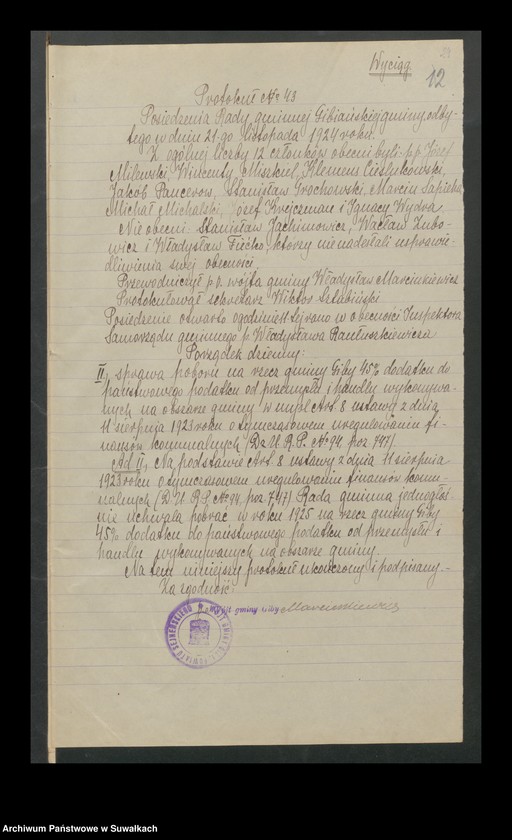 Wyciąg
12
Protokuł № 43
Posiedzenia Rady gminnej Gibiańskiej gminy, odby-
tego w dniu 21-go listopada 1924 roku.
Z ogólnej liczby 12 członków obecni byli: p.p. Józef
Milewski, Wincenty Miszkiel, Klemens Cieślukowski,
Jakób Pancerow, Stanisław Grochowski, Marcin Sapieha,
Michał Michalski, Józef Krejczman i Ignacy Wydra
Nie obecni: Stanisław Jachimowicz, Wacław Zubo-
wicz i Władysław Fiećko, którzy nie nadesłali usprawie-
dliwienia swej obecności
Przewodniczył p.o. wójta gminy Władysław Marcinkiewicz
Protokułował sekretarz Wiktor Szłabiński
Posiedzenie otwarto o godzinie 11-tej rano w obecności Inspektora
Samorządu gminnego p. Władysława Rantuszkiewicza
Porządek dzienny:
II, sprawa poboru na rzecz gminy Giby 45% dodatku do
państwowego podatku od przemysłu i handlu wykonywa-
nych na obszarze gminy w myśl Art. 8 ustawy z dnia
11 sierpnia 1923 roku o tymczasowem uregulowaniu fi-
nansów komunalnych (Dz. U. R. P. № 94 poz 747).
Ad II, Na podstawie Art. 8 ustawy z dnia 11 sierpnia
1923 roku o tymczasowem uregulowaniu finansów komu-
nalnych (D. U. R. P. № 94 poz. 747) Rada gminna jednogłoś-
nie uchwala pobrać w roku 1925 na rzecz gminy Giby
45% dodatku do państwowego podatku od przemysłu i
handlu wykonywanych na obszarze gminy.
Na tem niniejszy protokuł ukończony i podpisany.-
Za zgodność:
Wójt gminy Giby Marcinkiewicz
POWIATU SEJNEŃSKIEGO
Archiwum Państwowe w Suwałkach